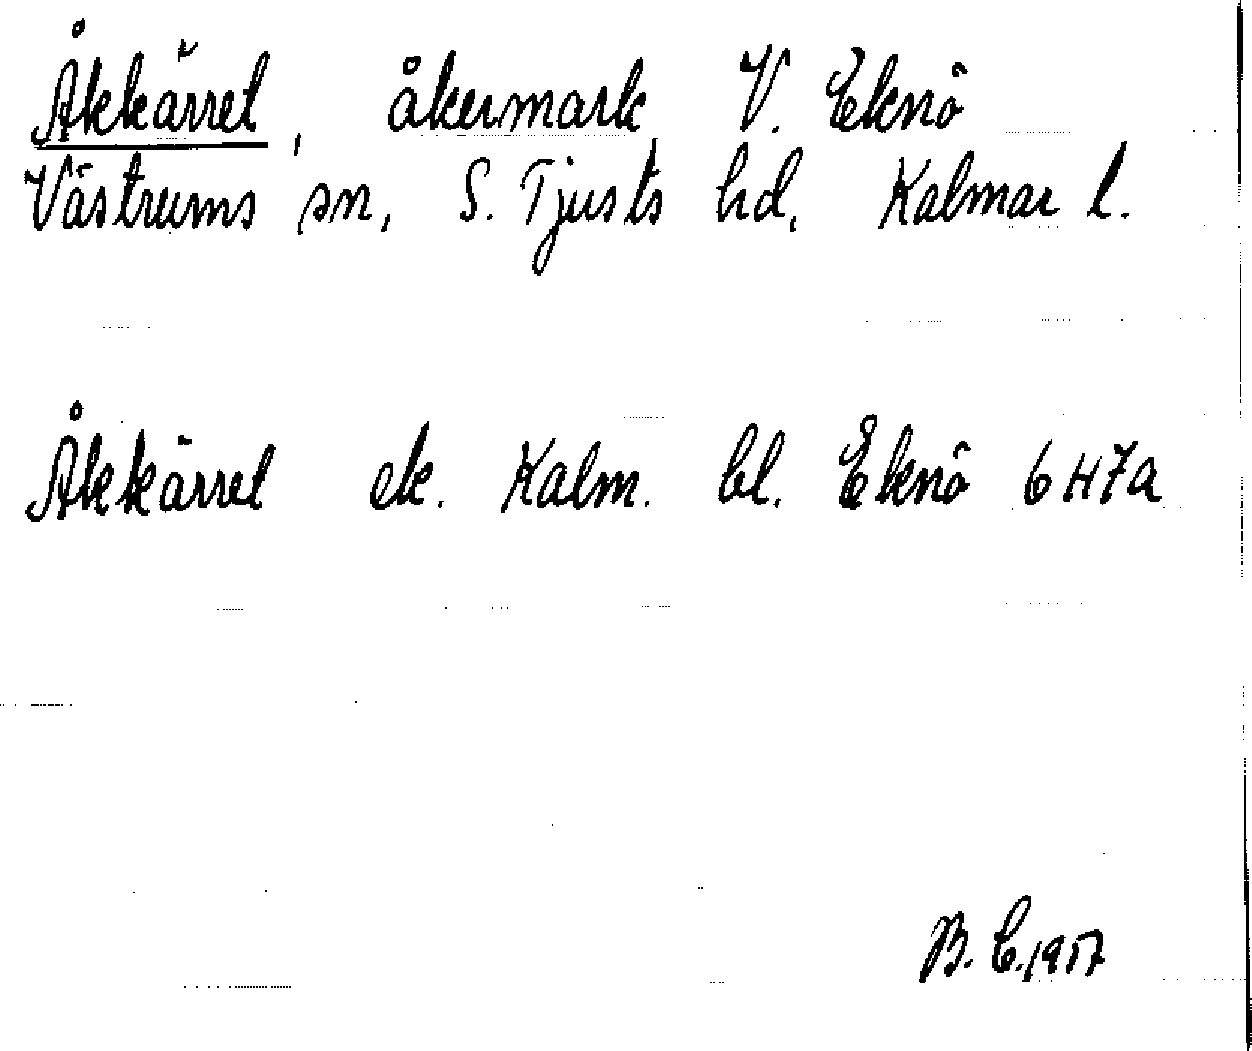 Åkkärret, åkermark, V. Eknö
Västrums sn, S. Tjusts hd, Kalmar l.
Åkkärret ek. Kalm. bl. Eknö 6H7a
B. E. 1957